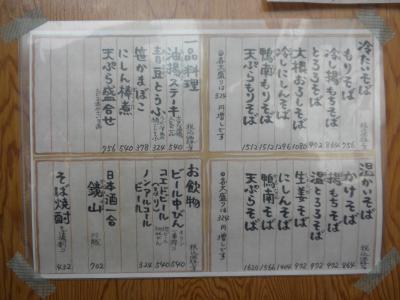 冷たいそば
もりそば 756
冷し揚もちそば 864
とろろそば 972
大根おろしそば 1080
冷しにしんそば 1296
鴨南もりそば 1512
天ぷらもりそば 1512
◎各大盛りは324円増しです
一品料理
油揚ステーキ 540
青豆とうふ 324
笹かまぼこ 378
にしん棒煮 540
天ぷら盛合せ 756
温かいそば
かけそば
揚もちそば 864
温とろろそば 972
生姜そば 972
にしんそば
鴨南そば
天ぷらそば 1620
◎各大盛りは324円増しです
お飲物
ビール中びん 540
コエドビール 540
ノンアルコールビール 324
日本酒一合
鏡山 702
そば焼酎 432